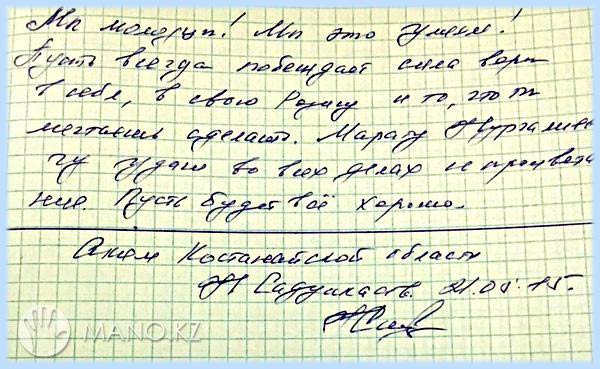 Мы молодцы! Мы это умеем!
Пусть всегда побеждает сила веры
в себя, в свою Родину и то, что ты
мечтаешь сделать. Марату Нургалие
чу удачи во всех делах и процвета
ние. Пусть будет всё хорошо.
Аким Костанайской области
Н Садуакасов. 21.05.15.
MANO.KZ